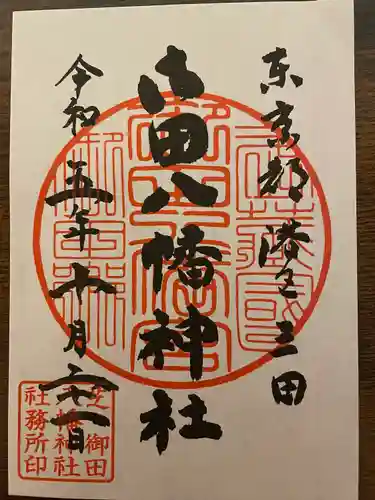 東京都港区三田
御田八幡神社
令和五年十月二十一日
芝御田
八幡神社
社務所印